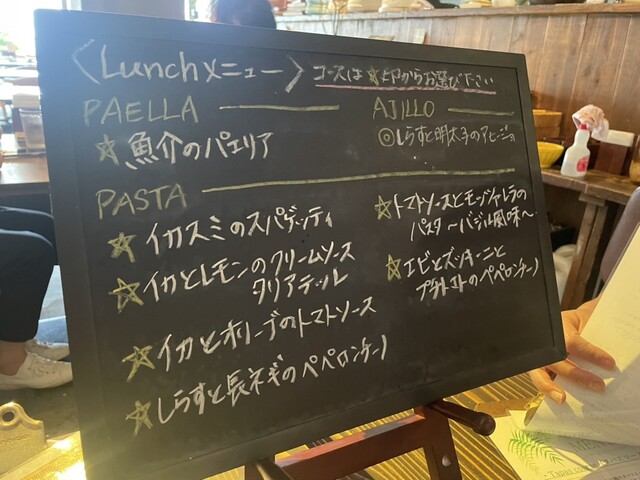 〈Lunchメニュー〉 コースは☆印からお選び下さい
PAELLA
☆魚介のパエリア
AJILLO
◎しらすと明太子のアヒージョ
PASTA
☆イカスミのスパゲッティ
☆イカとレモンのクリームソース
タリアテッレ
☆イカとオリーブのトマトソース
☆しらすと長ネギのペペロンチーノ
☆トマトソースとモッツァレラの
パスタ〜バジル風味〜
☆エビとズッキーニと
プチトマトのペペロンチーノ